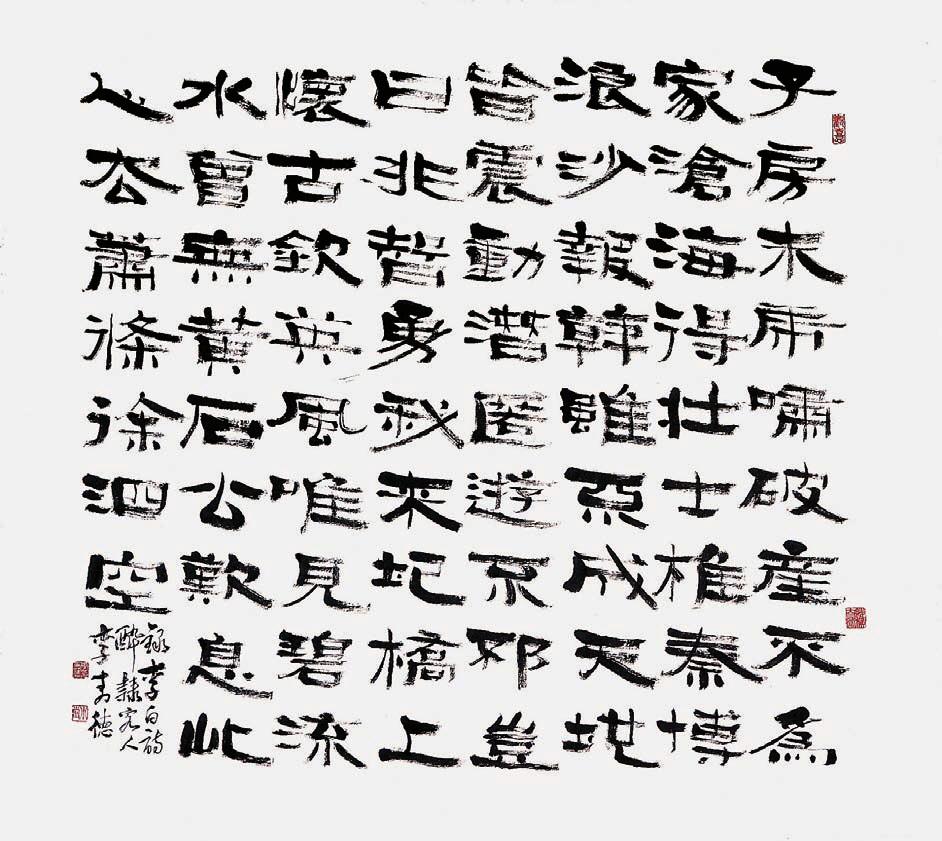 子房未虎嘯破產不為
家滄海得壯士椎秦博
浪沙報韓雖不成天地
皆震動潛匿遊下邳豈
曰非智勇我來圯橋上
懷古欽英風唯見碧流
水曾無黃石公歎息此
人去蕭條徐泗空
錄李白詩
醉隸人
李德